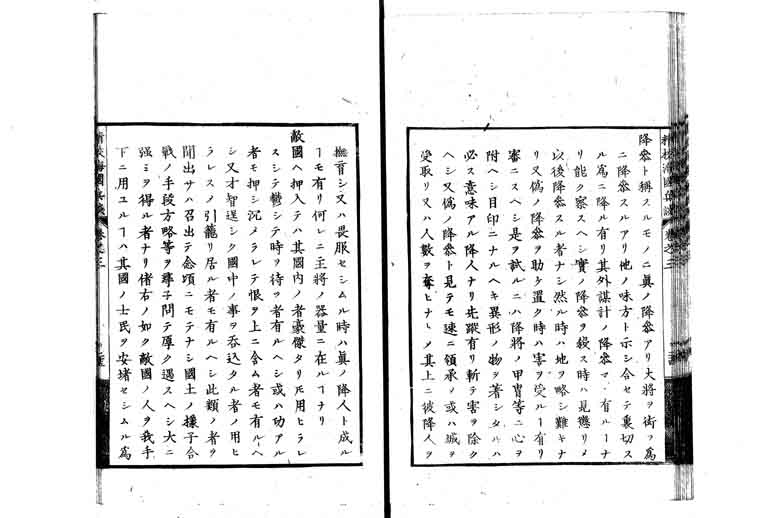 降參ト稱スルモノニ眞ノ降參アリ大將ヲ衒フ爲
ニ降參スルアリ他ノ味方ト示シ合セテ裏切ス
ル為ニ降ル有リ其外謀計ノ降參マヽ有ルーナ
リ能ク察スヘシ實ノ降參ヲ殺ス時ハ見懲リメ
以後降參スル者ナシ然ル時ハ地ヲ略シ難キナ
リ又偽ノ降參ヲ助ケ置ク時ハ害ヲ受ルー有リ
審ニスヘシ是ヲ試ルニハ降將ノ甲冑等ニ心ヲ
附ヘシ目印ニナルヘキ異形ノ物ヲ著シタルハ
必ス意味アル降人ナリ先蹤有リ斬テ害ヲ除ク
ヘシ又偽ノ降參ト見テモ速ニ領承ノ或ハ城ヲ
受取リ又ハ人數ヲ奪ヒナトノ其上ニ彼降人ヲ
撫育シ又ハ畏服セシムル時ハ眞ノ降人ト成ル
ーモ有リ何レニ主將ノ器量ニ在ルーナリ
敵國ヘ押入テハ其國内ノ者豪傑タリ𪜈用ヒラレ
スシテ鬱シテ時ヲ待ツ者有ルヘシ或ハ功アル
者モ押シ沉メラレテ恨ヲ上ニ含ム者モ有ルヘ
シ又才智逞シク國中ノ事ヲ呑込タル者ノ用ヒ
ラレスノ引籠リ居ル者モ有ルヘシ此類ノ者ヲ
聞出サハ召出テ念頃ニモテナシ國土ノ樣子合
戰ノ手段方略等ヲ尋子問テ厚ク遇スヘシ大ニ
强ミヲ得ル者ナリ偖右ノ如ク敵國ノ人ヲ我手
下ニ用ユルーハ其國ノ士民ヲ安堵セシムル爲